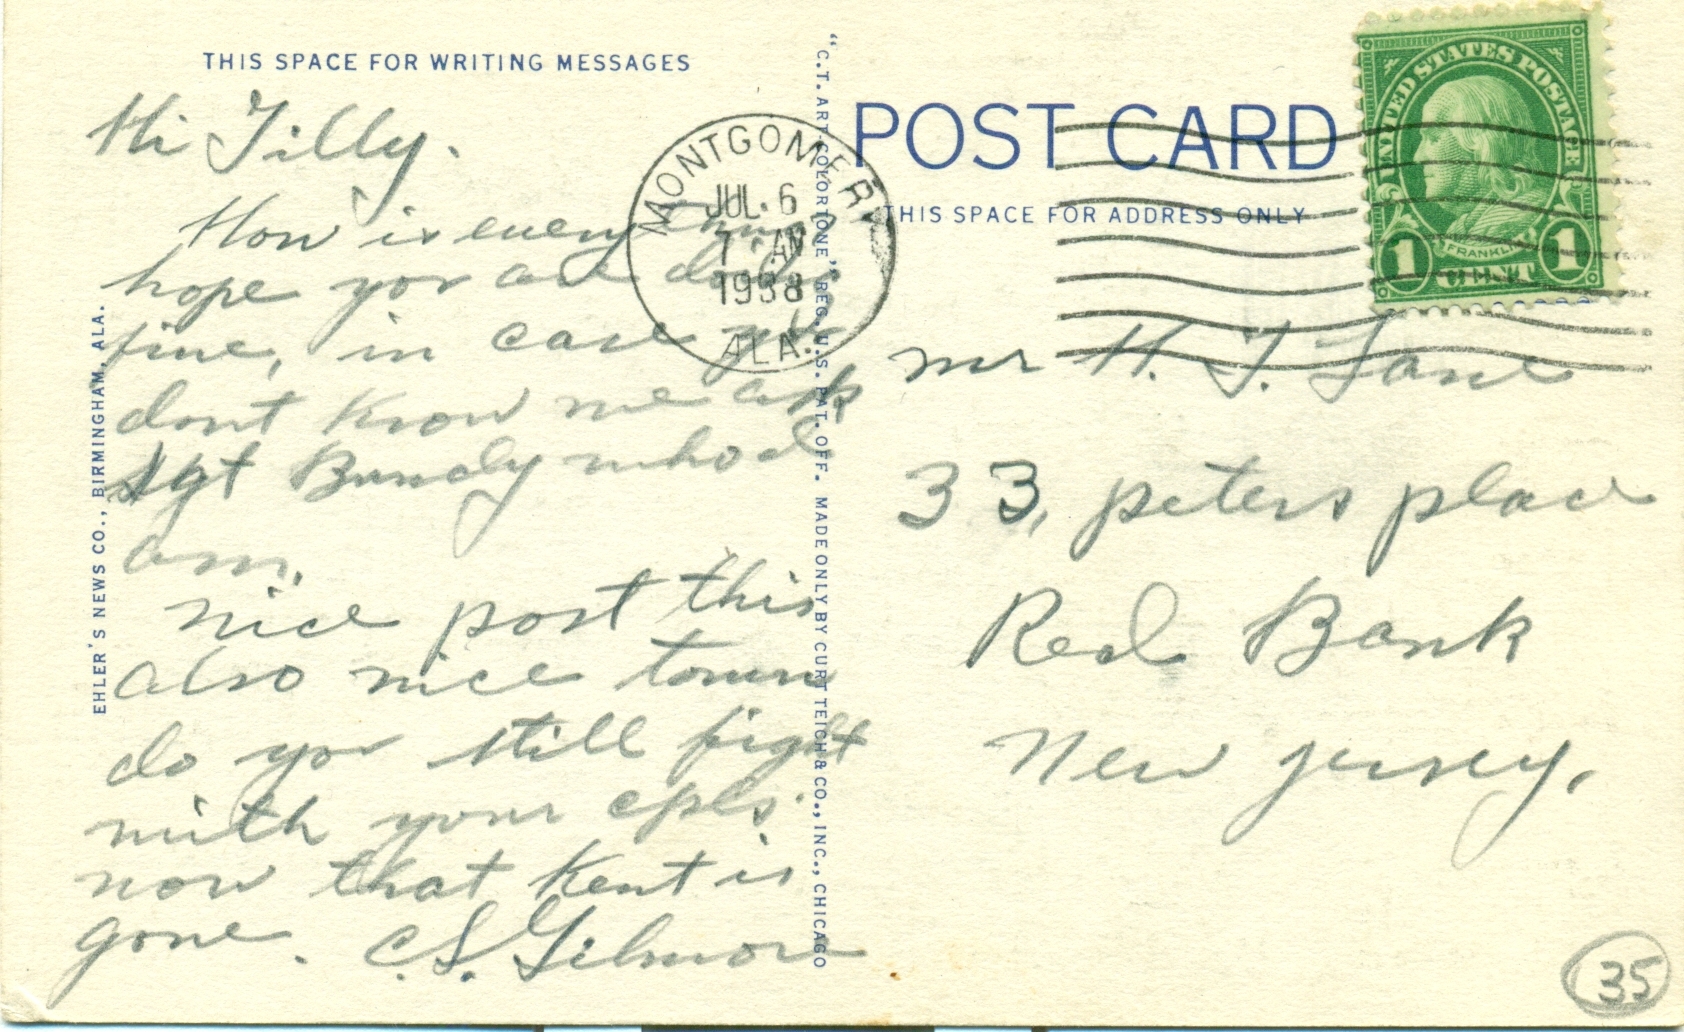 THIS SPACE FOR WRITING MESSAGES
Hi Tilly.
How is everything
hope you are doing
fine, in case you
dont know me ask
sgt Bundy whod
am.
nice post this
also nice town
do you still fight
with your cpls.
now that Kent is
gone. C.S. Gilmore
EHLER'S NEWS CO., BIRMINGHAM, ALA.
"C.T. ART-COLORTONE" REG. U.S. PAT. OFF. MADE ONLY BY CURT TEICH & CO., INC., CHICAGO
MONTGOMERY
JUL 6
7 AM
1938
ALA.
POST CARD
THIS SPACE FOR ADDRESS ONLY
UNITED STATES POSTAGE
FRANKLIN
1 CENT 1
mr H. T. Lane
33, peters place
Red Bank
New jersey,
35